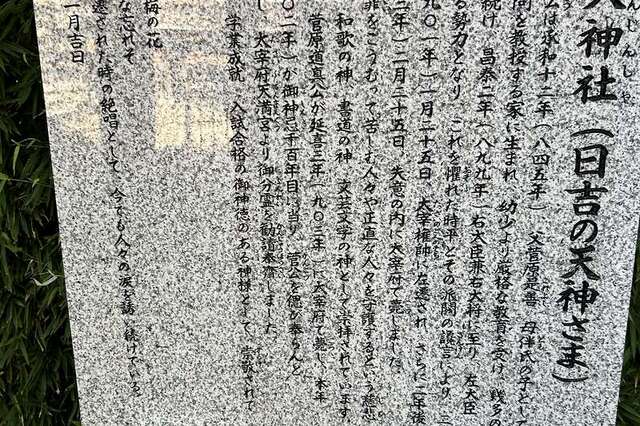 天神社（日吉の天神さま）
んじんしゃ
公は承和十二年（八四五年） 父菅原是善 母伴氏の子として
問を教授する家に生まれ 幼少より厳格な教育を受け 幾多の
続け 昌泰二年（八九九年）右大臣兼右大将に至り 左大臣
る勢力となり これを懼れた時平とその派閥の讒言により
九〇一年）一月二十五日、太宰権帥に左遷され、さらに二年後
三年）二月二十五日、失意の内に太宰府で薨しました。
罪をこうむって苦しむ人々や正直な人々を守護するという慈悲
和歌の神 書道の神 文芸文学の神として崇拝されています。
菅原道真公が延喜三年（九〇三年）に太宰府で薨し、本年
〇二年）が御神忌千百年目に当り、菅公を偲び奉らん
し 太宰府天満宮より御分霊を勧請奉斎しました。
学業成就 入試合格の御神徳のある神様として、崇敬されて
梅の花
な忘れそ
遷された時の絶唱として 今でも人々の涙を誘い続けている。
一月吉日